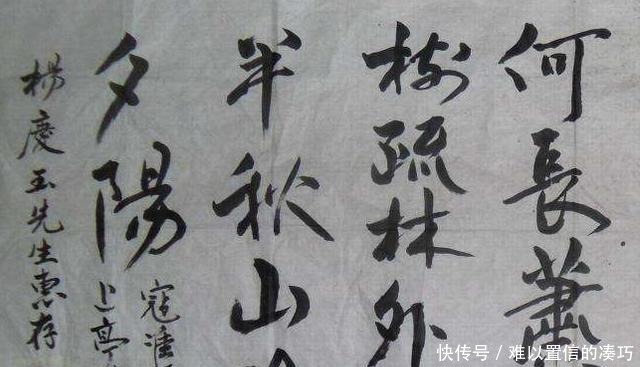 何長蕭
樹疏林外
半秋山
夕陽
寇準
上亭
楊慶玉先生惠存
快传号 / 难以置信的凑巧